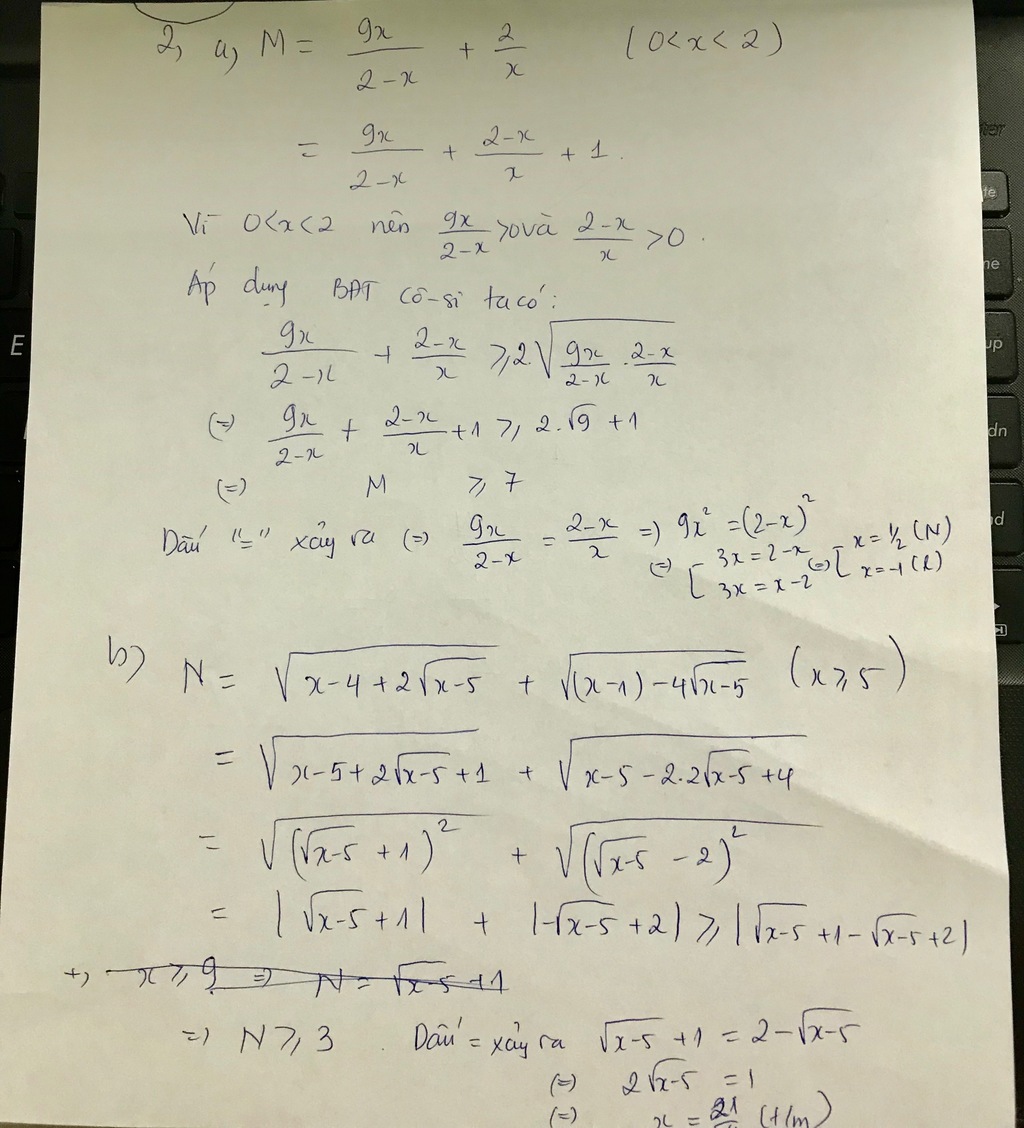 2, a, M = 9x/(2-x) + 2/x (0<x<2)
= 9x/(2-x) + (2-x)/x + 1.
Vì 0<x<2 nên 9x/(2-x) >0 và (2-x)/x >0.
Áp dụng BĐT cô-si ta có:
9x/(2-x) + (2-x)/x ≥ 2.√(9x/(2-x) . (2-x)/x)
(=) 9x/(2-x) + (2-x)/x + 1 ≥ 2.√9 + 1
(=) M ≥ 7
Dấu "=" xảy ra (=) 9x/(2-x) = (2-x)/x => 9x² = (2-x)²
(=) [ 3x = 2-x (=) [ x = 1/2 (N)
3x = x-2 x = -1 (L)
b) N = √(x-4+2√(x-5)) + √((x-1)-4√(x-5)) (x ≥ 5)
= √(x-5+2√(x-5)+1) + √(x-5-2.2√(x-5)+4)
= √((√(x-5)+1)²) + √((√(x-5)-2)²)
= |√(x-5)+1| + |-√(x-5)+2| ≥ |√(x-5)+1-√(x-5)+2|
+, x ≥ 9 => N = √(x-5)+1
=) N ≥ 3. Dấu = xảy ra √(x-5)+1 = 2-√(x-5)
(=) 2√(x-5) = 1
(=) x = 21/ (t/m)
E
te
me
up
dn
nd